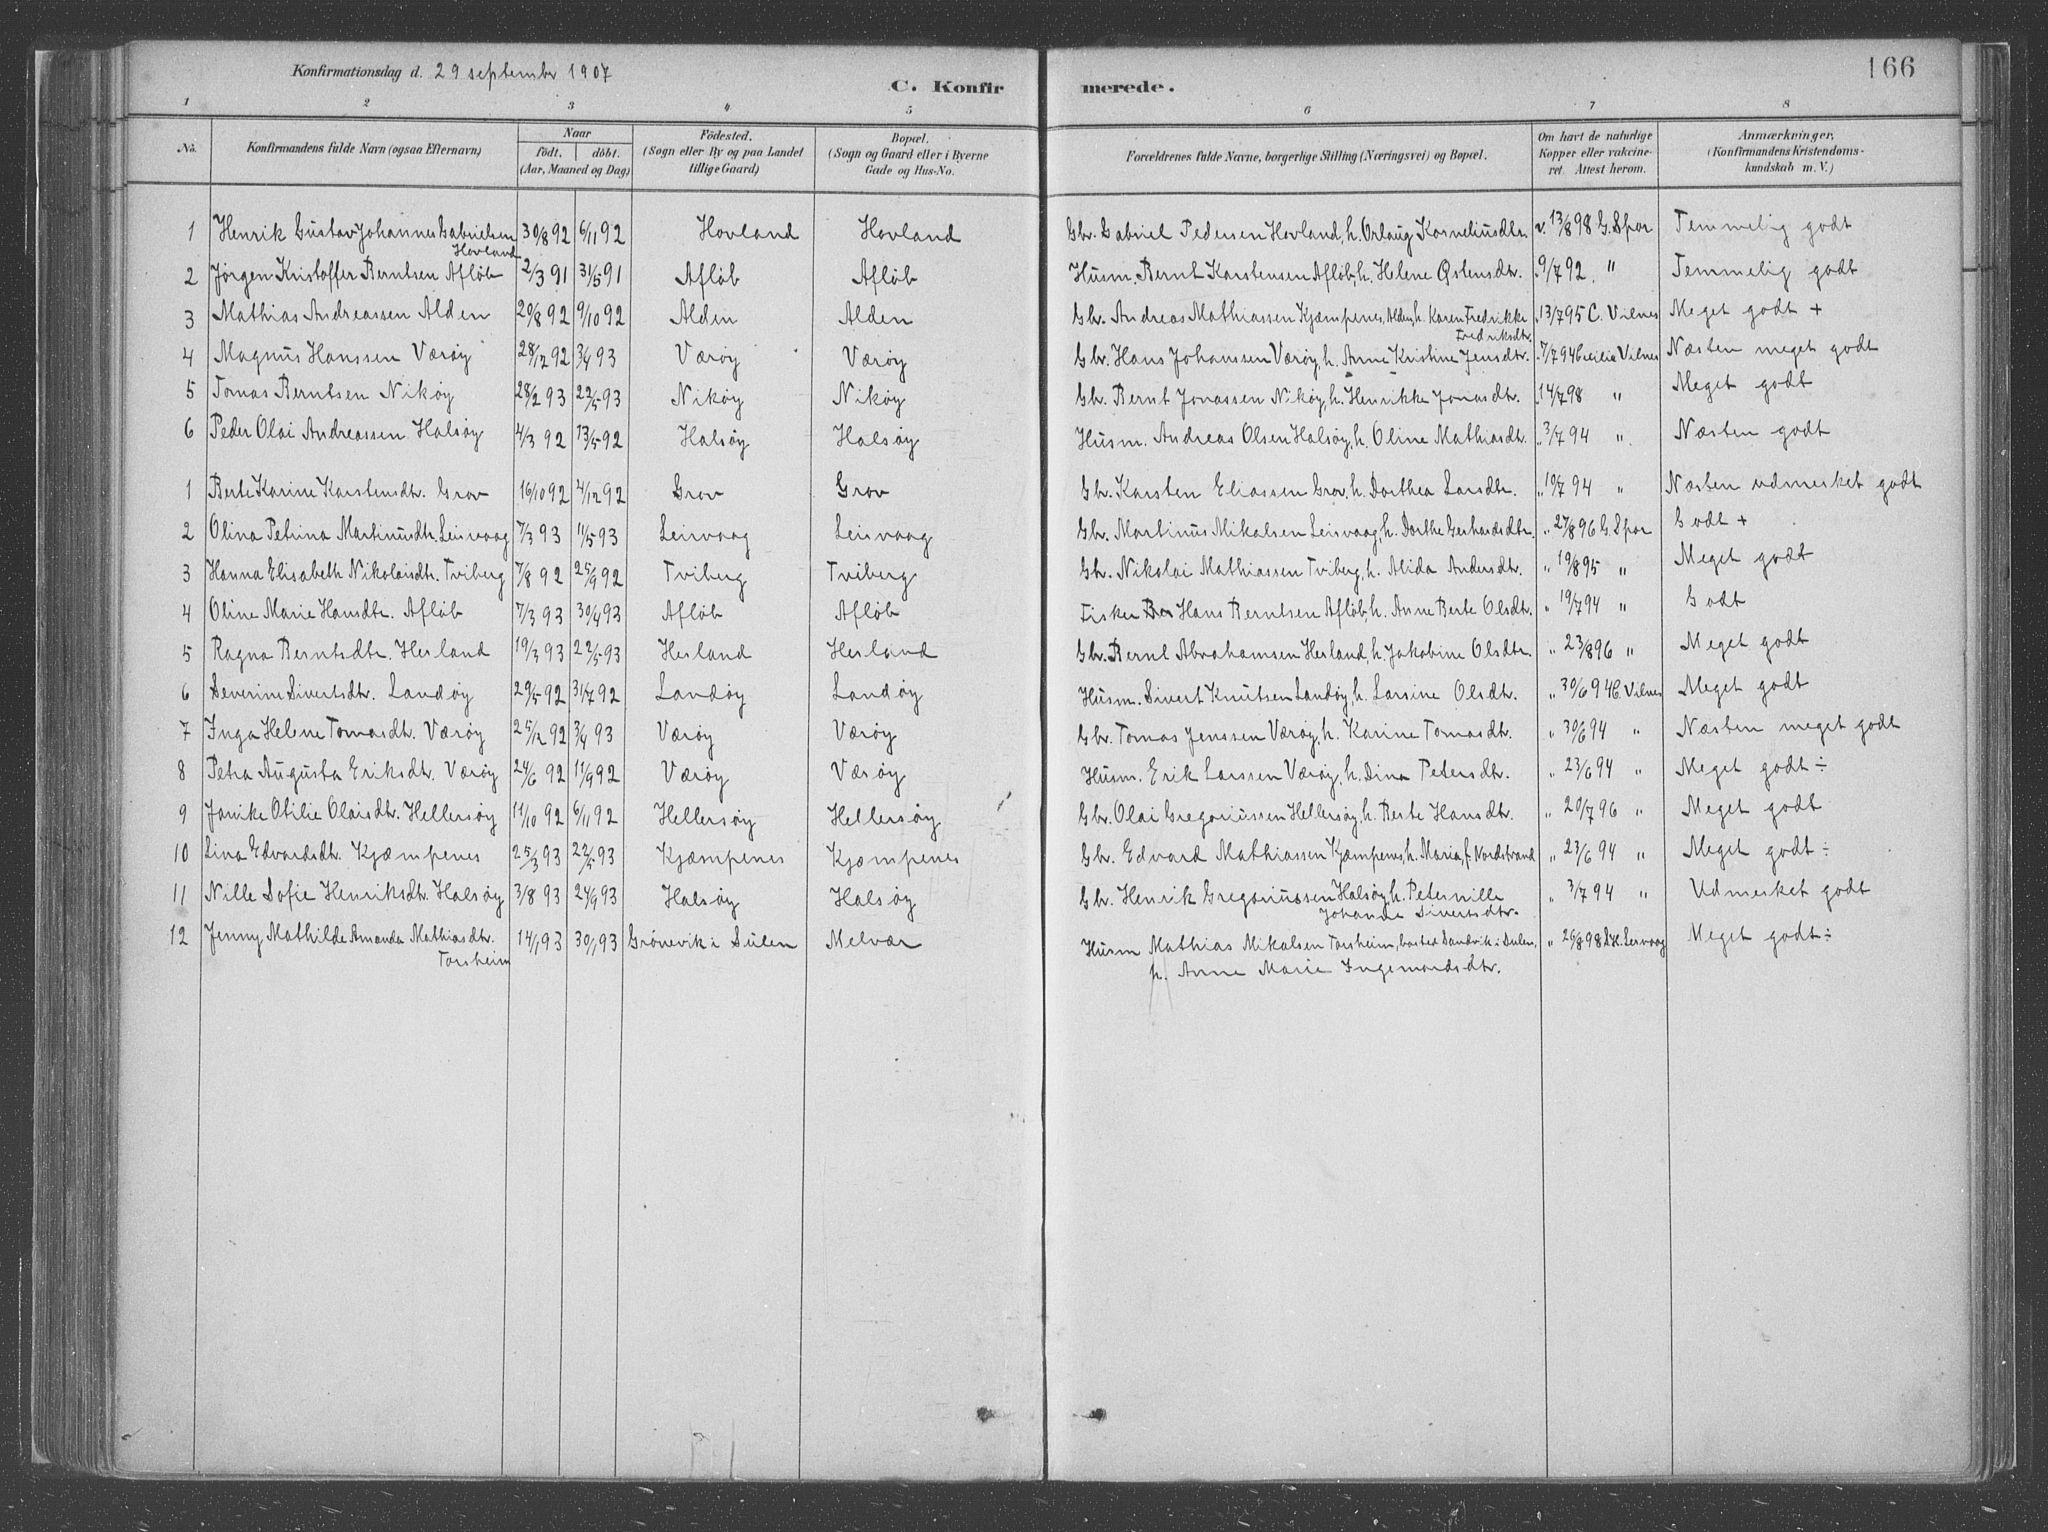 Konfirmationsdag d. 29 september 1907
166
C. Konfirmerede.
1 2 3 4 5 6 7 8
No. Konfirmandens fulde Navn (ogsaa Efternavn) Naar födt. döbt. (Aar, Maaned og Dag) Födested. (Sogn eller By og paa Landet tillige Gaard) Bopæl. (Sogn og Gaard eller i Byerne Gade og Hus-No. Forældrenes fulde Navne, borgerlige Stilling (Næringsvei) og Bopæl. Om havt de naturlige Kopper eller vakcineret. Attest herom. Anmærkninger. (Konfirmandens Kristendomskundskab m. V.)
1 Henrik Gustav Johannes Gabrielsen Hovland 30/8 92 6/11 92 Hovland Hovland Gbr. Gabriel Pedersen Hovland, h. Orlaug Korneliusdtr. v. 13/8 98 G. Spor Temmelig godt
2 Jörgen Kristoffer Berntsen Aflöb 2/3 91 31/5 91 Aflöb Aflöb Husm. Bernt Karstensen Aflöb, h. Helene Östensdtr. " 9/7 92 " Temmelig godt
3 Mathias Andreassen Alden 29/8 92 9/10 92 Alden Alden Gbr. Andreas Mathiassen Kjæmpenes, Alden, h. Karen Fredrikke Fredriksdtr. " 13/7 95 C. Vilnes Meget godt +
4 Magnus Hanssen Værøy 28/12 92 3/4 93 Værøy Værøy Gbr. Hans Johanssen Værøy, h. Anne Kristine Jensdtr. " 7/7 94 Cecilie Vilnes Næsten meget godt
5 Tomas Berntsen Nikøy 28/2 93 22/5 93 Nikøy Nikøy Gbr. Bernt Jonassen Nikøy, h. Henrikke Jonasdtr. " 14/7 98 " Meget godt
6 Peder Olai Andreassen Halsøy 4/3 92 13/5 92 Halsøy Halsøy Husm. Andreas Olsen Halsøy, h. Oline Mathiasdtr. " 3/7 94 " Næsten godt
1 Berte Karine Karstensdtr. Grov 16/10 92 4/12 92 Grov Grov Gbr. Karsten Eliassen Grov, h. Dorthea Larsdtr. " 10/7 94 " Næsten udmerket godt
2 Olina Petrina Martinusdtr. Leirvaag 7/3 93 11/5 93 Leirvaag Leirvaag Gbr. Martinus Mikalsen Leirvaag, h. Dorthe Gerhardsdtr. " 27/8 96 G. Spor Godt +
3 Hanna Elisabeth Nikolaisdtr. Tviberg 7/8 92 25/9 92 Tviberg Tviberg Gbr. Nikolai Mathiassen Tviberg, h. Alida Andersdtr. " 19/8 95 " Meget godt
4 Oline Marie Hansdtr. Aflöb 7/3 93 30/4 93 Aflöb Aflöb Fisker Hans Berntsen Aflöb, h. Anne Berte Olsdtr. " 19/7 94 " Godt
5 Ragna Berntsdtr. Herland 19/3 93 22/5 93 Herland Herland Gbr. Bernt Abrahamsen Herland, h. Jakobine Olsdtr. " 23/8 96 " Meget godt
6 Severine Sivertsdtr. Landøy 29/5 92 31/7 92 Landøy Landøy Husm. Sivert Knutsen Landøy, h. Larsine Olsdtr. " 30/6 94 C. Vilnes Meget godt
7 Inga Helene Tomasdtr. Værøy 25/12 92 3/4 93 Værøy Værøy Gbr. Tomas Jenssen Værøy, h. Karine Tomasdtr. " 30/6 94 " Næsten meget godt
8 Petra Augusta Eriksdtr. Værøy 24/6 92 11/9 92 Værøy Værøy Husm. Erik Larssen Værøy, h. Dina Petersdtr. " 23/6 94 " Meget godt ÷
9 Janike Otilie Olaisdtr. Hellersøy 11/10 92 6/11 92 Hellersøy Hellersøy Gbr. Olai Gregoriussen Hellersøy, h. Berte Hansdtr. " 20/7 96 " Meget godt
10 Lina Edvardsdtr. Kjæmpenes 25/3 93 22/5 93 Kjæmpenes Kjæmpenes Gbr. Edvard Mathiassen Kjæmpenes, h. Maria, f. Nordstrand " 23/6 94 " Meget godt ÷
11 Nille Sofie Henriksdtr. Halsøy 3/8 93 24/9 93 Halsøy Halsøy Gbr. Henrik Gregoriussen Halsøy, h. Peternille Johanne Sivertsdtr. " 3/7 94 " Udmerket godt
12 Jenny Mathilde Amanda Mathiasdtr. Torsheim 14/1 93 30/1 93 Grönevik i Sulen Melvær Husm Mathias Mikalsen Torsheim, bosted Sandvik i Sulen, h. Anne Marie Ingemardsdtr. " 26/8 98 Lervaag Meget godt ÷